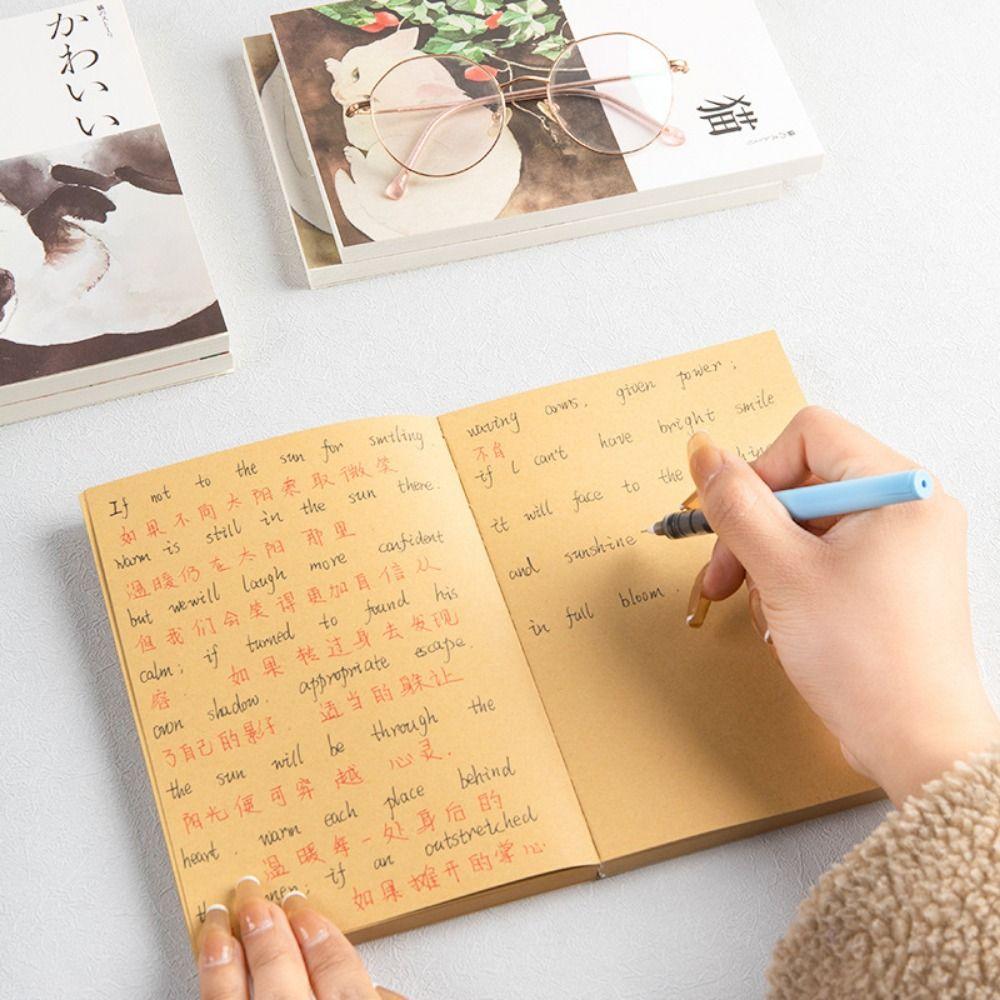 かわいい
猫
If not to the sun for smiling.
如果不向太阳索取微笑
warm is still in the sun there.
温暖仍在太阳 那里
but wewill laugh more confident
但我们会笑得更加自信从
calm; if turned to found his
容 如果转过身去发现
own shadow. appropriate escape.
了自己的影子 适当的躲让
the sun will be through the
阳光便可穿越 心灵.
heart. warm each place behind
温暖每一处身后的
if an outstretched
如果摊开的掌心
waving arms. given power;
不自
if I can't have bright smile
it will face to the
and sunshine
in full bloom.